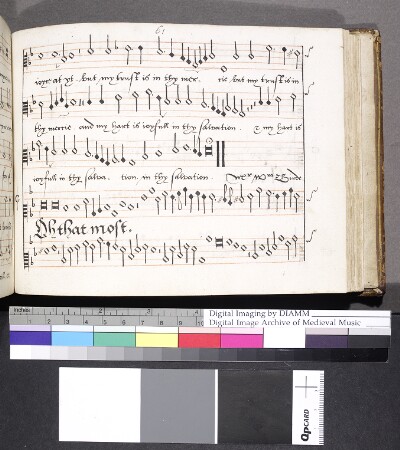 61
ioye at yt . but my trust is in thy mer. cie but my trust is in
thy mercie and my hart is ioyfull in thy salvation . & my hart is
ioyfull in thy salva. tion. in thy salvation.
Oh that most.
inches 1 2 3 4
1 2 3 4 5 6 7 8 9 10
Digital Imaging by DIAMM
Digital Image Archive of Medieval Music
QPCARD